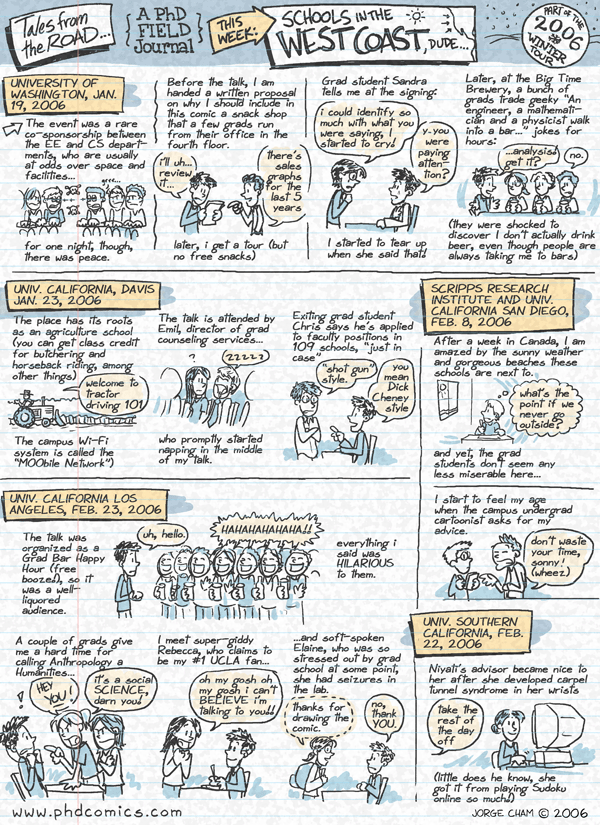 Tales from
the ROAD...
A PhD
FIELD
Journal
THIS
WEEK:
SCHOOLS IN THE
WEST COAST, DUDE...
PART OF THE
2006
WINTER
TOUR
UNIVERSITY OF
WASHINGTON, JAN.
19, 2006
The event was a rare
co-sponsorship between
the EE and CS depart-
ments, who are usually
at odds over space and
facilities...
for one night, though,
there was peace.
Before the talk, I am
handed a written proposal
on why I should include in
this comic a snack shop
that a few grads run
from their office in the
fourth floor.
i'll uh...
review
it...
there's
sales
graphs
for the
last 5
years
later, i get a tour (but
no free snacks)
Grad student Sandra
tells me at the signing:
i could identify so
much with what you
were saying, I
started to cry!
y-you
were
paying
atten-
tion?
I started to tear up
when she said that!
Later, at the Big Time
Brewery, a bunch of
grads trade geeky "An
engineer, a mathemati-
cian and a physicist walk
into a bar..." jokes for
hours:
...analysis!
get it?
no.
(they were shocked to
discover I don't actually drink
beer, even though people are
always taking me to bars)
UNIV. CALIFORNIA, DAVIS
JAN. 23, 2006
The place has its roots
as an agriculture school
(you can get class credit
for butchering and
horseback riding, among
other things)
welcome to
tractor
driving 101
The campus Wi-Fi
system is called the
"MOObile Network")
The talk is attended by
Emil, director of grad
counseling services...
?
zzzzz
who promptly started
napping in the middle
of my talk.
Exiting grad student
Chris says he's applied
to faculty positions in
109 schools, "just in
case"
"shot gun"
style.
you
mean
Dick
Cheney
style
SCRIPPS RESEARCH
INSTITUTE AND UNIV.
CALIFORNIA SAN DIEGO,
FEB. 8, 2006
After a week in Canada, I am
amazed by the sunny weather
and gorgeous beaches these
schools are next to.
what's the
point if we
never go
outside?
and yet, the grad
students don't seem any
less miserable here...
I start to feel my age
when the campus undergrad
cartoonist asks for my
advice.
don't waste
your time,
sonny!
(wheez)
UNIV. CALIFORNIA LOS
ANGELES, FEB. 23, 2006
The talk was
organized as a
Grad Bar Happy
Hour (free
booze!), so it
was a well-
liquored
audience.
uh, hello.
HAHAHAHAHAHA!!
everything i
said was
HILARIOUS
to them.
A couple of grads give
me a hard time for
calling Anthropology a
Humanities...
!
HEY
YOU!
it's a social
SCIENCE,
darn you!
I meet super-giddy
Rebecca, who claims to
be my #1 UCLA fan...
oh my gosh oh
my gosh i can't
BELIEVE i'm
talking to you!!
...and soft-spoken
Elaine, who was so
stressed out by grad
school at some point,
she had seizures in
the lab.
thanks for
drawing the
comic.
no,
thank
YOU.
UNIV. SOUTHERN
CALIFORNIA, FEB.
22, 2006
Niyati's advisor became nice to
her after she developed carpel
tunnel syndrome in her wrists
take the
rest of
the day
off
(little does he know, she
got it from playing Sudoku
online so much!)
www.phdcomics.com
JORGE CHAM © 2006